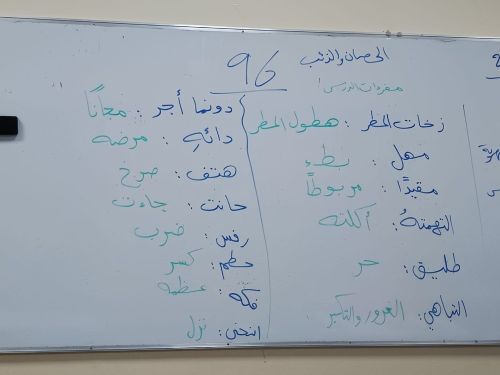 الحصان والذئب
96
مفردات الدرس
زخات المطر : هطول المطر
مهل : بطء
مقيدًا : مربوطًا
التهمته : أكلته
طليق : حر
التباهي : الغرور والتكبر
دونما أجر : مجانًا
دائه : مرضه
هتف : صرخ
حانت : جاءت
رفس : ضرب
حطم : كسر
فكه : عظمه
انحنى : نزل